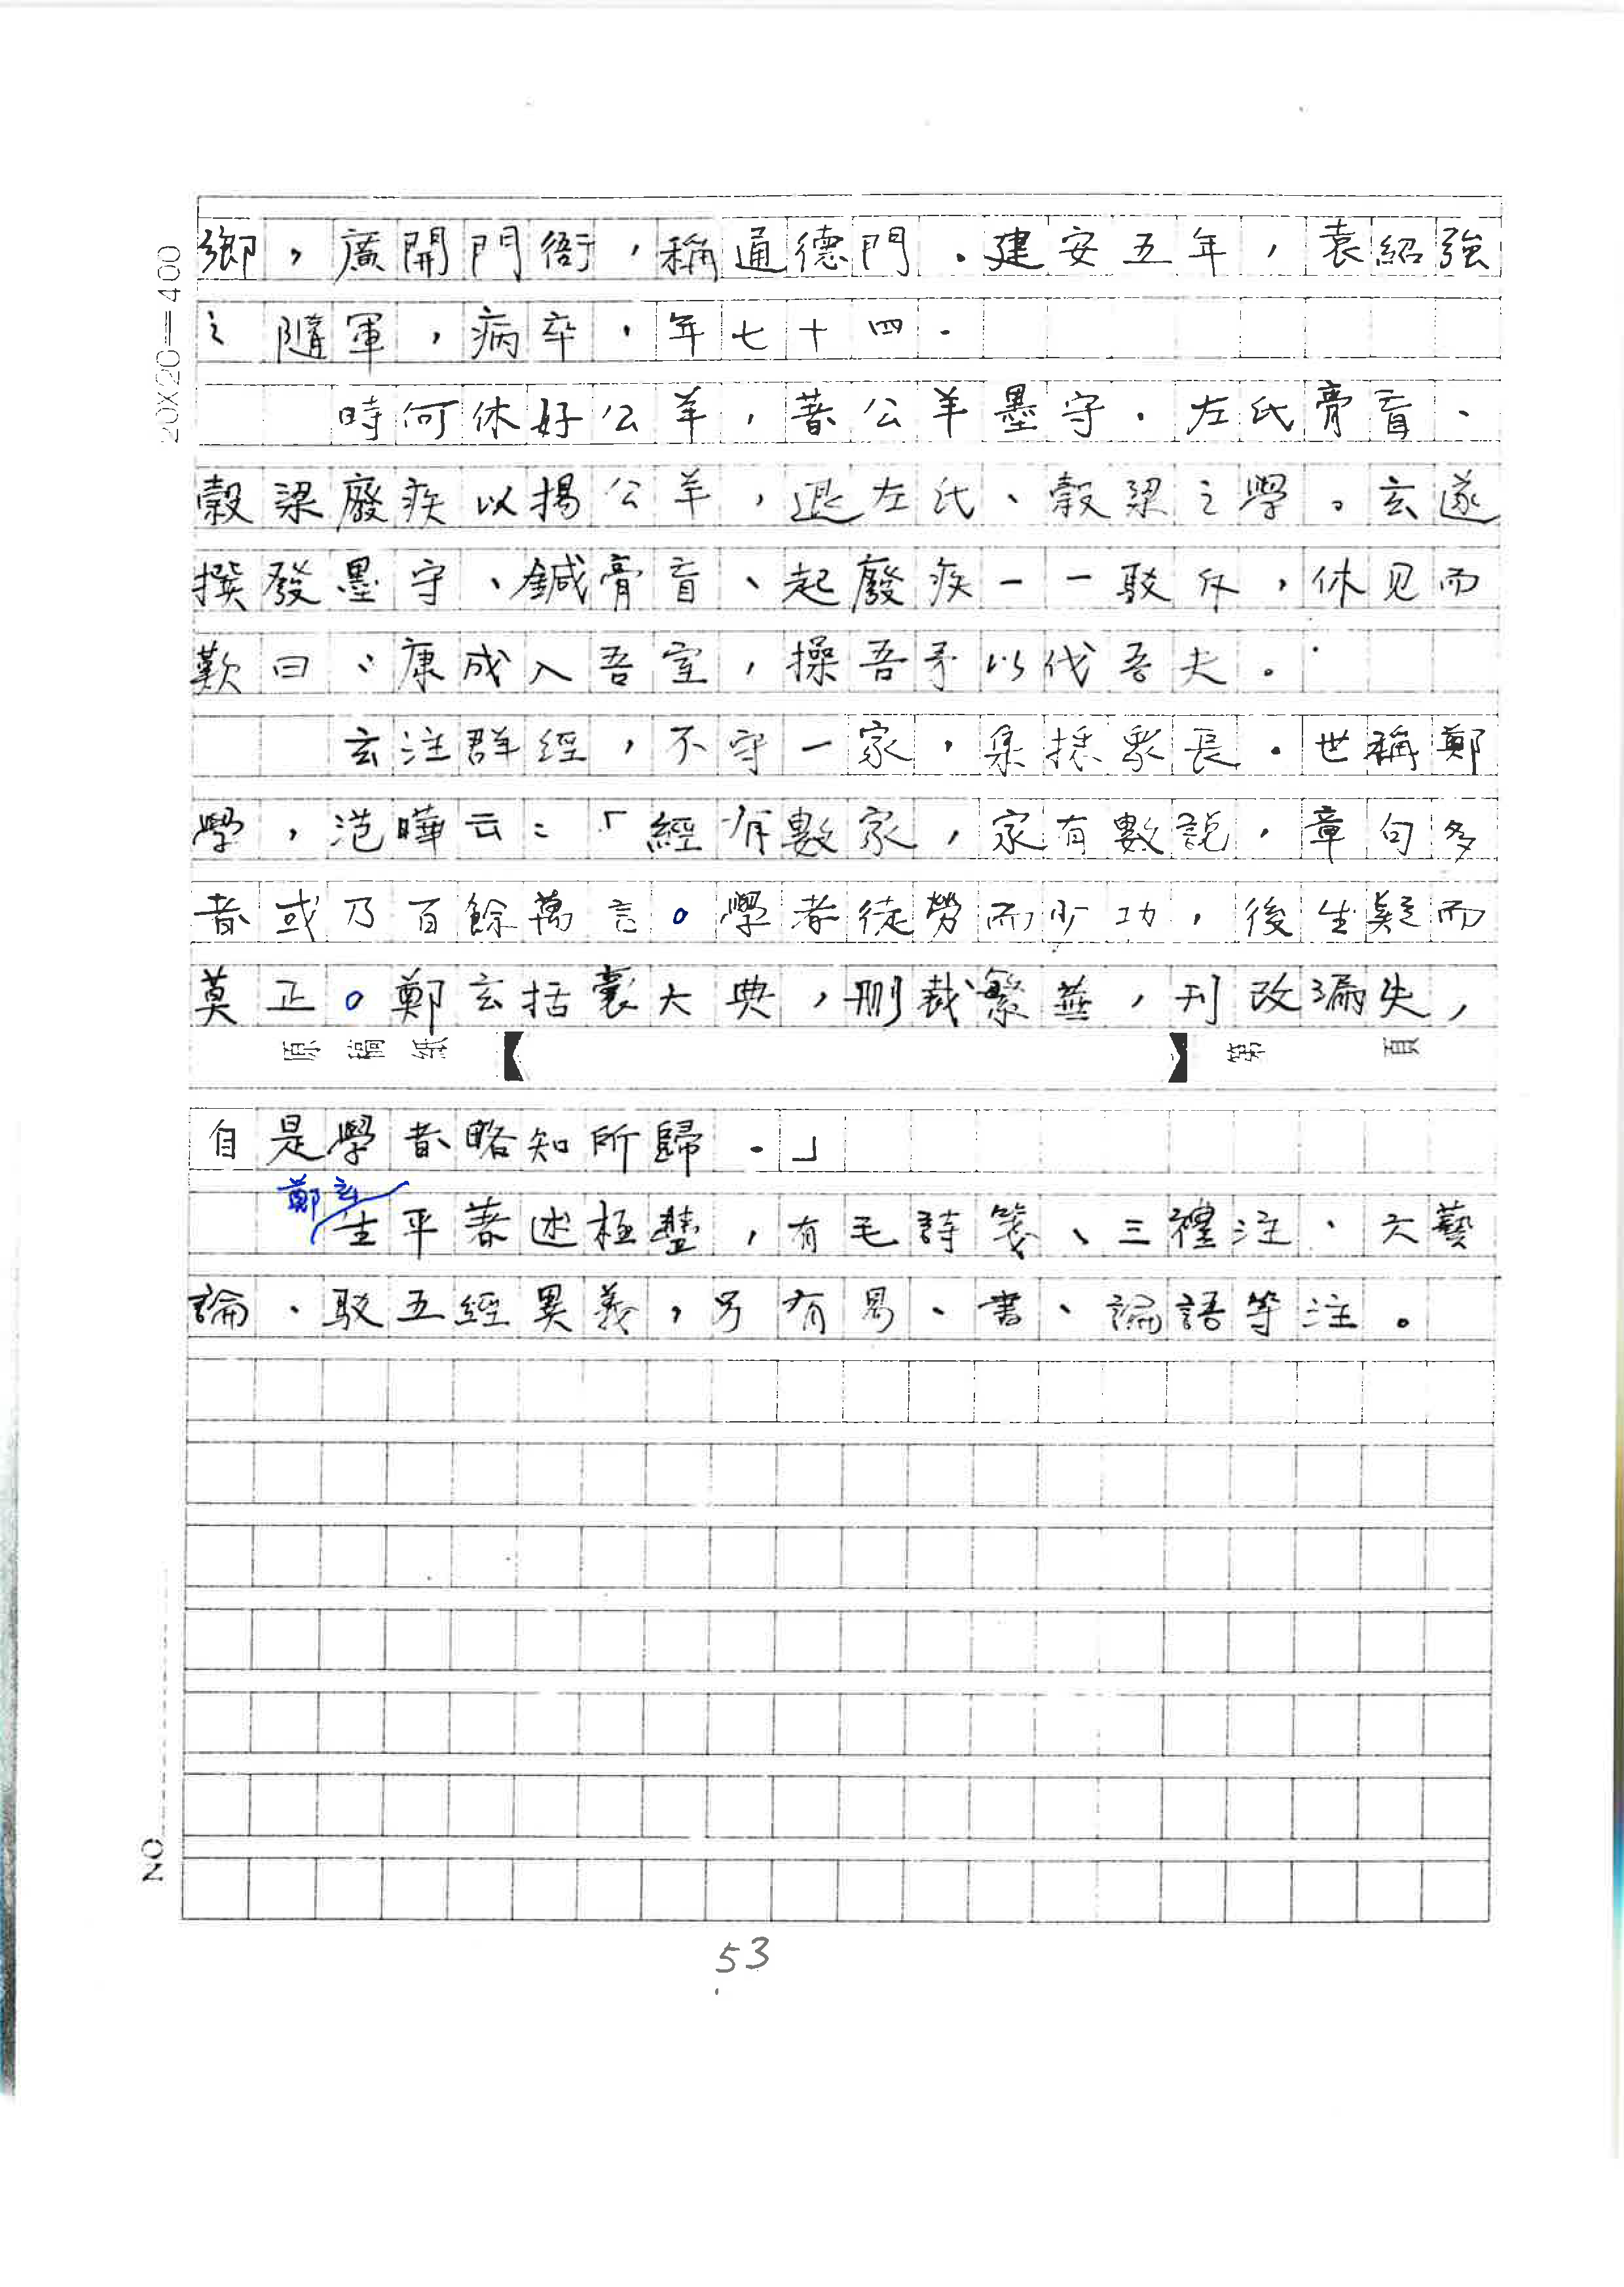 20X20=400
鄉，廣開門衙，稱通德門．建安五年，袁紹強
之隨軍，病卒，年七十四．
時何休好公羊，著公羊墨守．左氏膏肓、
穀梁廢疾以揚公羊，退左氏、穀梁之學。玄遂
撰發墨守、鍼膏肓、起廢疾一一駁斥，休見而
歎曰：康成入吾室，操吾矛以伐吾夫．
玄注群經，不守一家，集採衆長．世稱鄭
學，范曄云：「經有數家，家有數說，章句多
者或乃百餘萬言。學者徒勞而少功，後生疑而
莫正。鄭玄括囊大典，刪裁繁蕪，刊改漏失，
原稿紙【 】第 頁
自是學者略知所歸．」
鄭玄生平著述極豐，有毛詩箋、三禮注、六藝
論、駁五經異義，另有易、書、論語等注。
NO
53